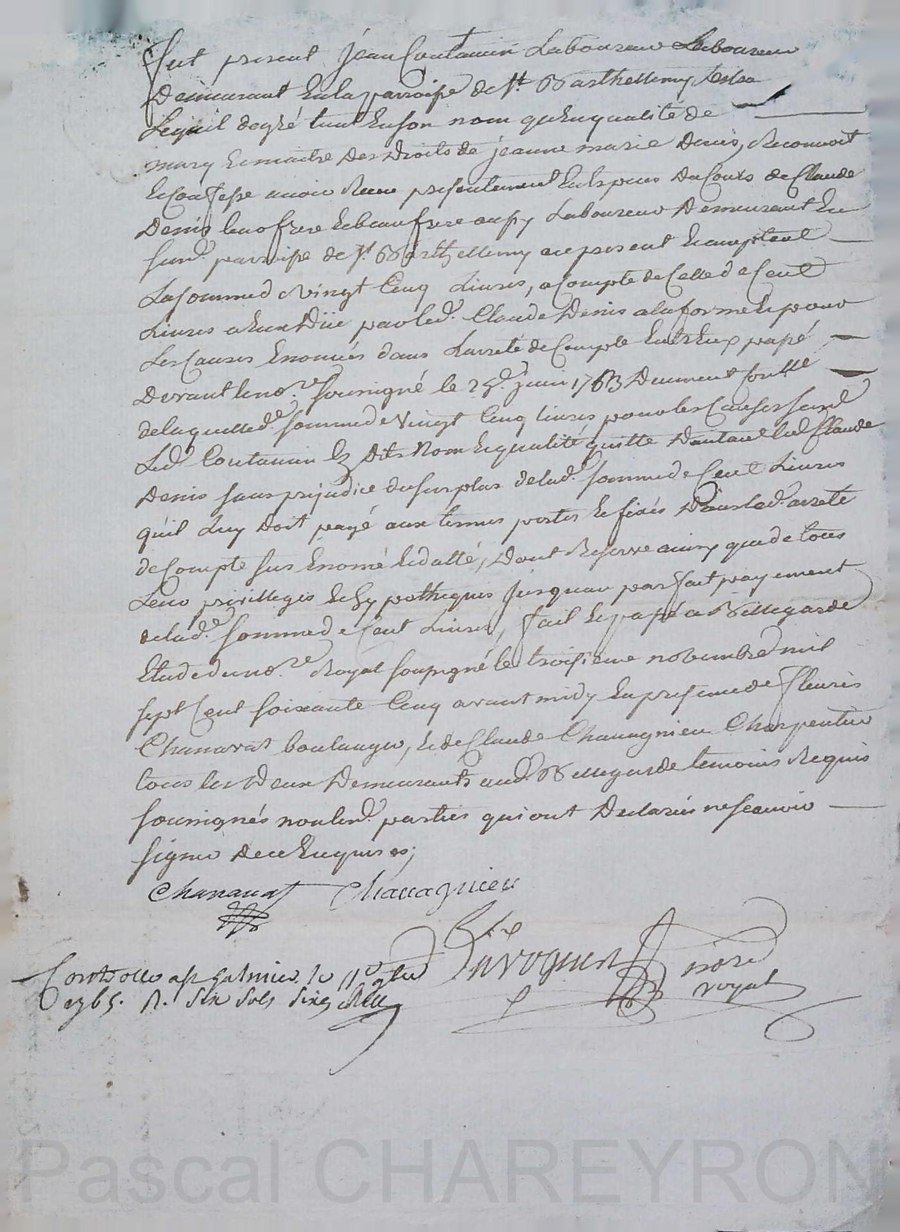 fut present jean Coutanin Laboureur Laboureur
Demeurant En la parroisse de St. Barthellemy Lestra
Lequel de gré tant En son nom qu'En qualité de
mary Et maitre Des droits de jeanne marie Denis, Reconnoit
Et Confesse avoir Receu presentement En Especes Du Cours de Claude
Denis leur frere Et beaufrere aussy Laboureur Demeurant En
parroisse de St. Barthellemy ace present Et acceptant
La somme de vingt Cinq Livres, a Compte de Celle de Cent
Livres a Eux Düe par led. Claude Denis a la forme Et pour
Les Causes Enoncés dans Larreté de Compte Entr'Eux passé
Devant le nore. soussigné le 29e. juin 1763 Duement Conllé
de laquelle de. somme de vingt Cinq livres pour les Causes
Led. Coutanin Es Dits Nom Et qualité quitte Dautant led. Claude
Denis sans prejudice du surplus de lad. somme de Cent Livres
qu'il Luy doit payé aux termes portes Et fixés Dans led. arreté
de Compte sus Enoncé Et datté, Dont Reserve ainsy que de tous
Leurs privilleges Et hypotheques jusqu'au parfait payement
de lad. somme de Cent Livres, fait Et passé a Bellegarde
Etude du nore. Royal soussigné le troisieme novembre mil
sept Cent soixante Cinq avant midy En presence de fleuris
Chanavat boulanger, Et de Claude Chavagnieu Charpentier
tous les Deux Demeurants aud. Bellegarde temoins Requis
soussignés non lesd. parties qui ont Declarés ne scavoir
signer De ce Enquises;
Chanavat Chavagnieu
nore
royal
Controlle a st Galmier le 11e 9bre
1765. R. six sols six
Pascal CHAREYRON